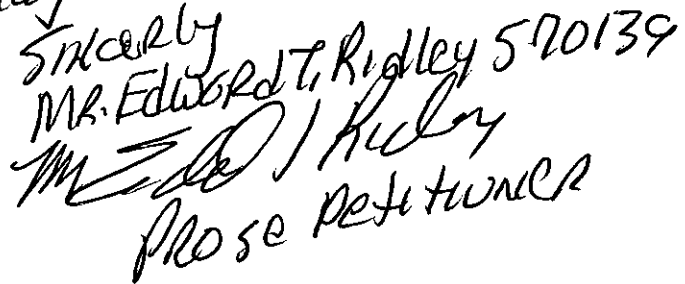 Sincerly
MR. Edward T. Ridley 570139
Mr Edward T Ridley
PRO se Petitioner